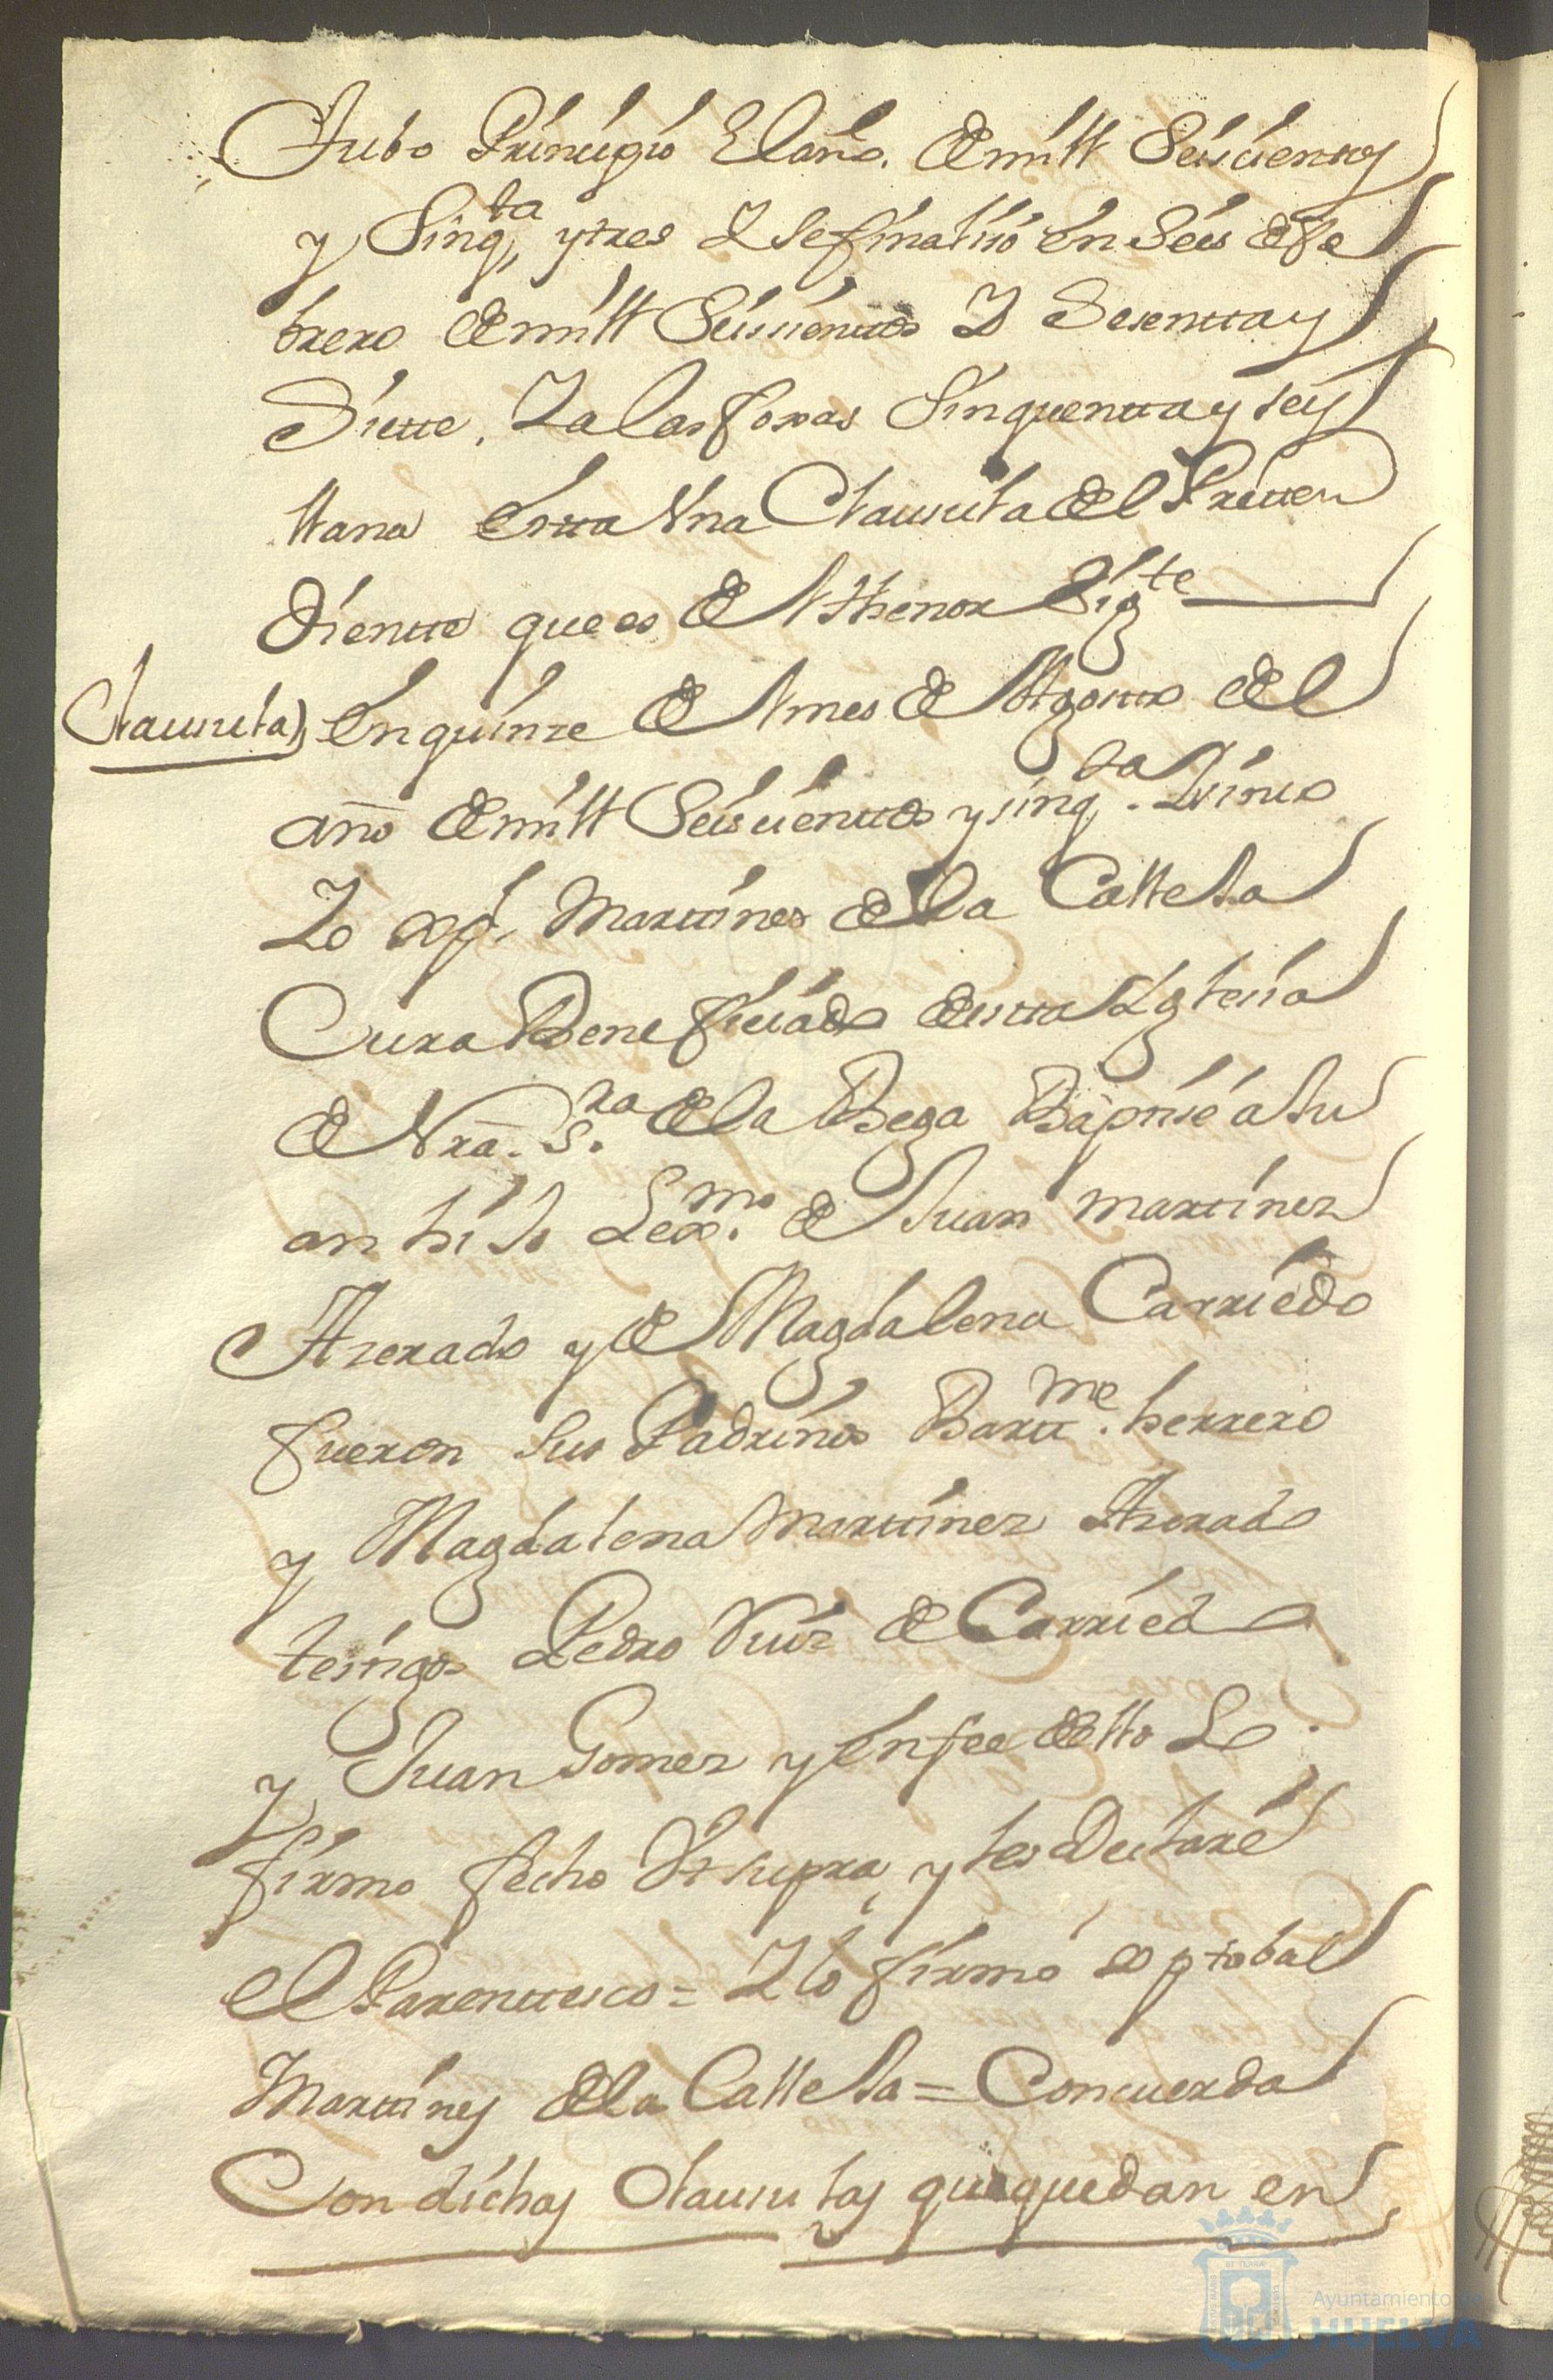 tubo Prinçipio El año. de mill Seiscientos
y Sinq.ta y tres Y Se finaliso en Seis de fe
brero de mill Seiscienttos Y Sesentta y
Siette. Y a las foxas Sinquentta y seis
llana Estta Vna Clausula del Pretten
dientte que es del thenor Sig.te
Clausula) En quinze del mes de Agostto del
año de mill Seiscienttos y sinq.ta Y sinco
Yo xpl. Marttines de la Callexa
Cura Benefisiado de estta Yglesia
de Nra. S.ra de la Bega Baptise a Ju
an hijo Lex.mo de Juan marttinez
Azerado y de Magdalena Carriedo
fueron Sus Padrinos Bartt.me herrero
y Magdalena Marttinez Azerado
testigos Pedro Ruiz de Carriedo
y Juan Gomez y En fee de ello Lo
firmo fecho Vt supra, y les Declare
el Parenttesco = Y lo firmo xptobal
Marttines de la Callexa = Concuerda
Con dichas Clausulas que quedan en
Ayuntamiento de
HUELVA